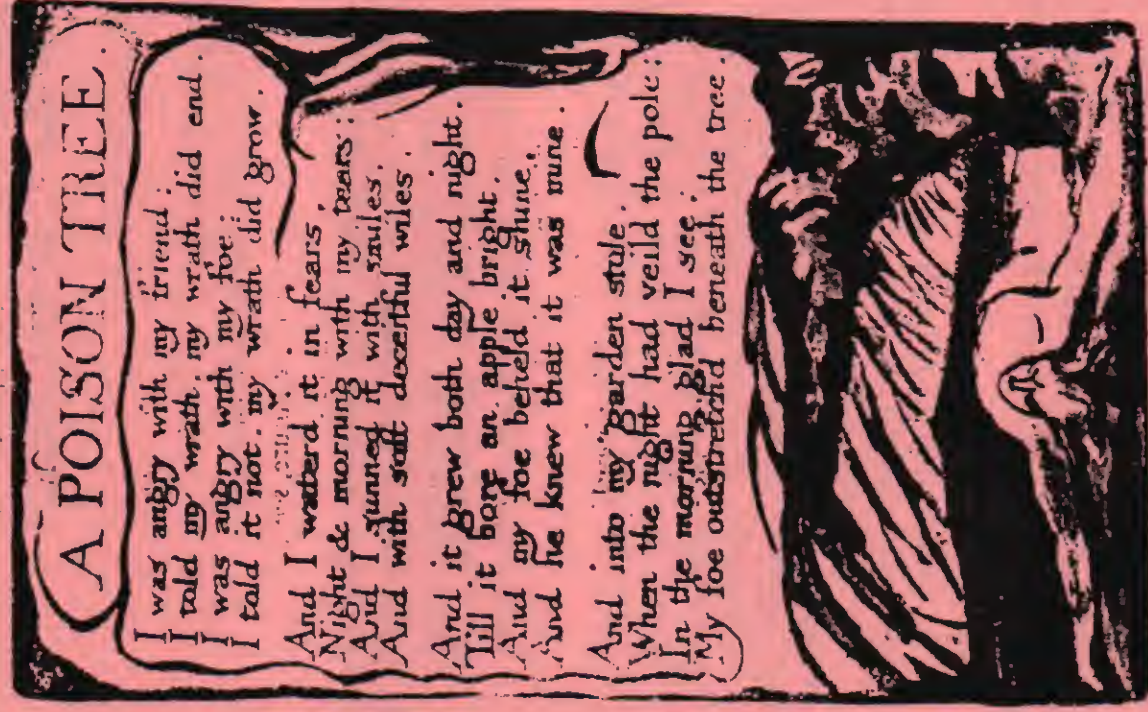 A POISON TREE.
I was angry with my friend:
I told my wrath, my wrath did end.
I was angry with my foe:
I told it not, my wrath did grow.
And I waterd it in fears,
Night & morning with my tears:
And I sunned it with smiles,
And with soft deceitful wiles.
And it grew both day and night.
Till it bore an apple bright.
And my foe beheld it shine,
And he knew that it was mine.
And into my garden stole.
When the night had veild the pole;
In the morning glad I see,
My foe outstretchd beneath the tree.